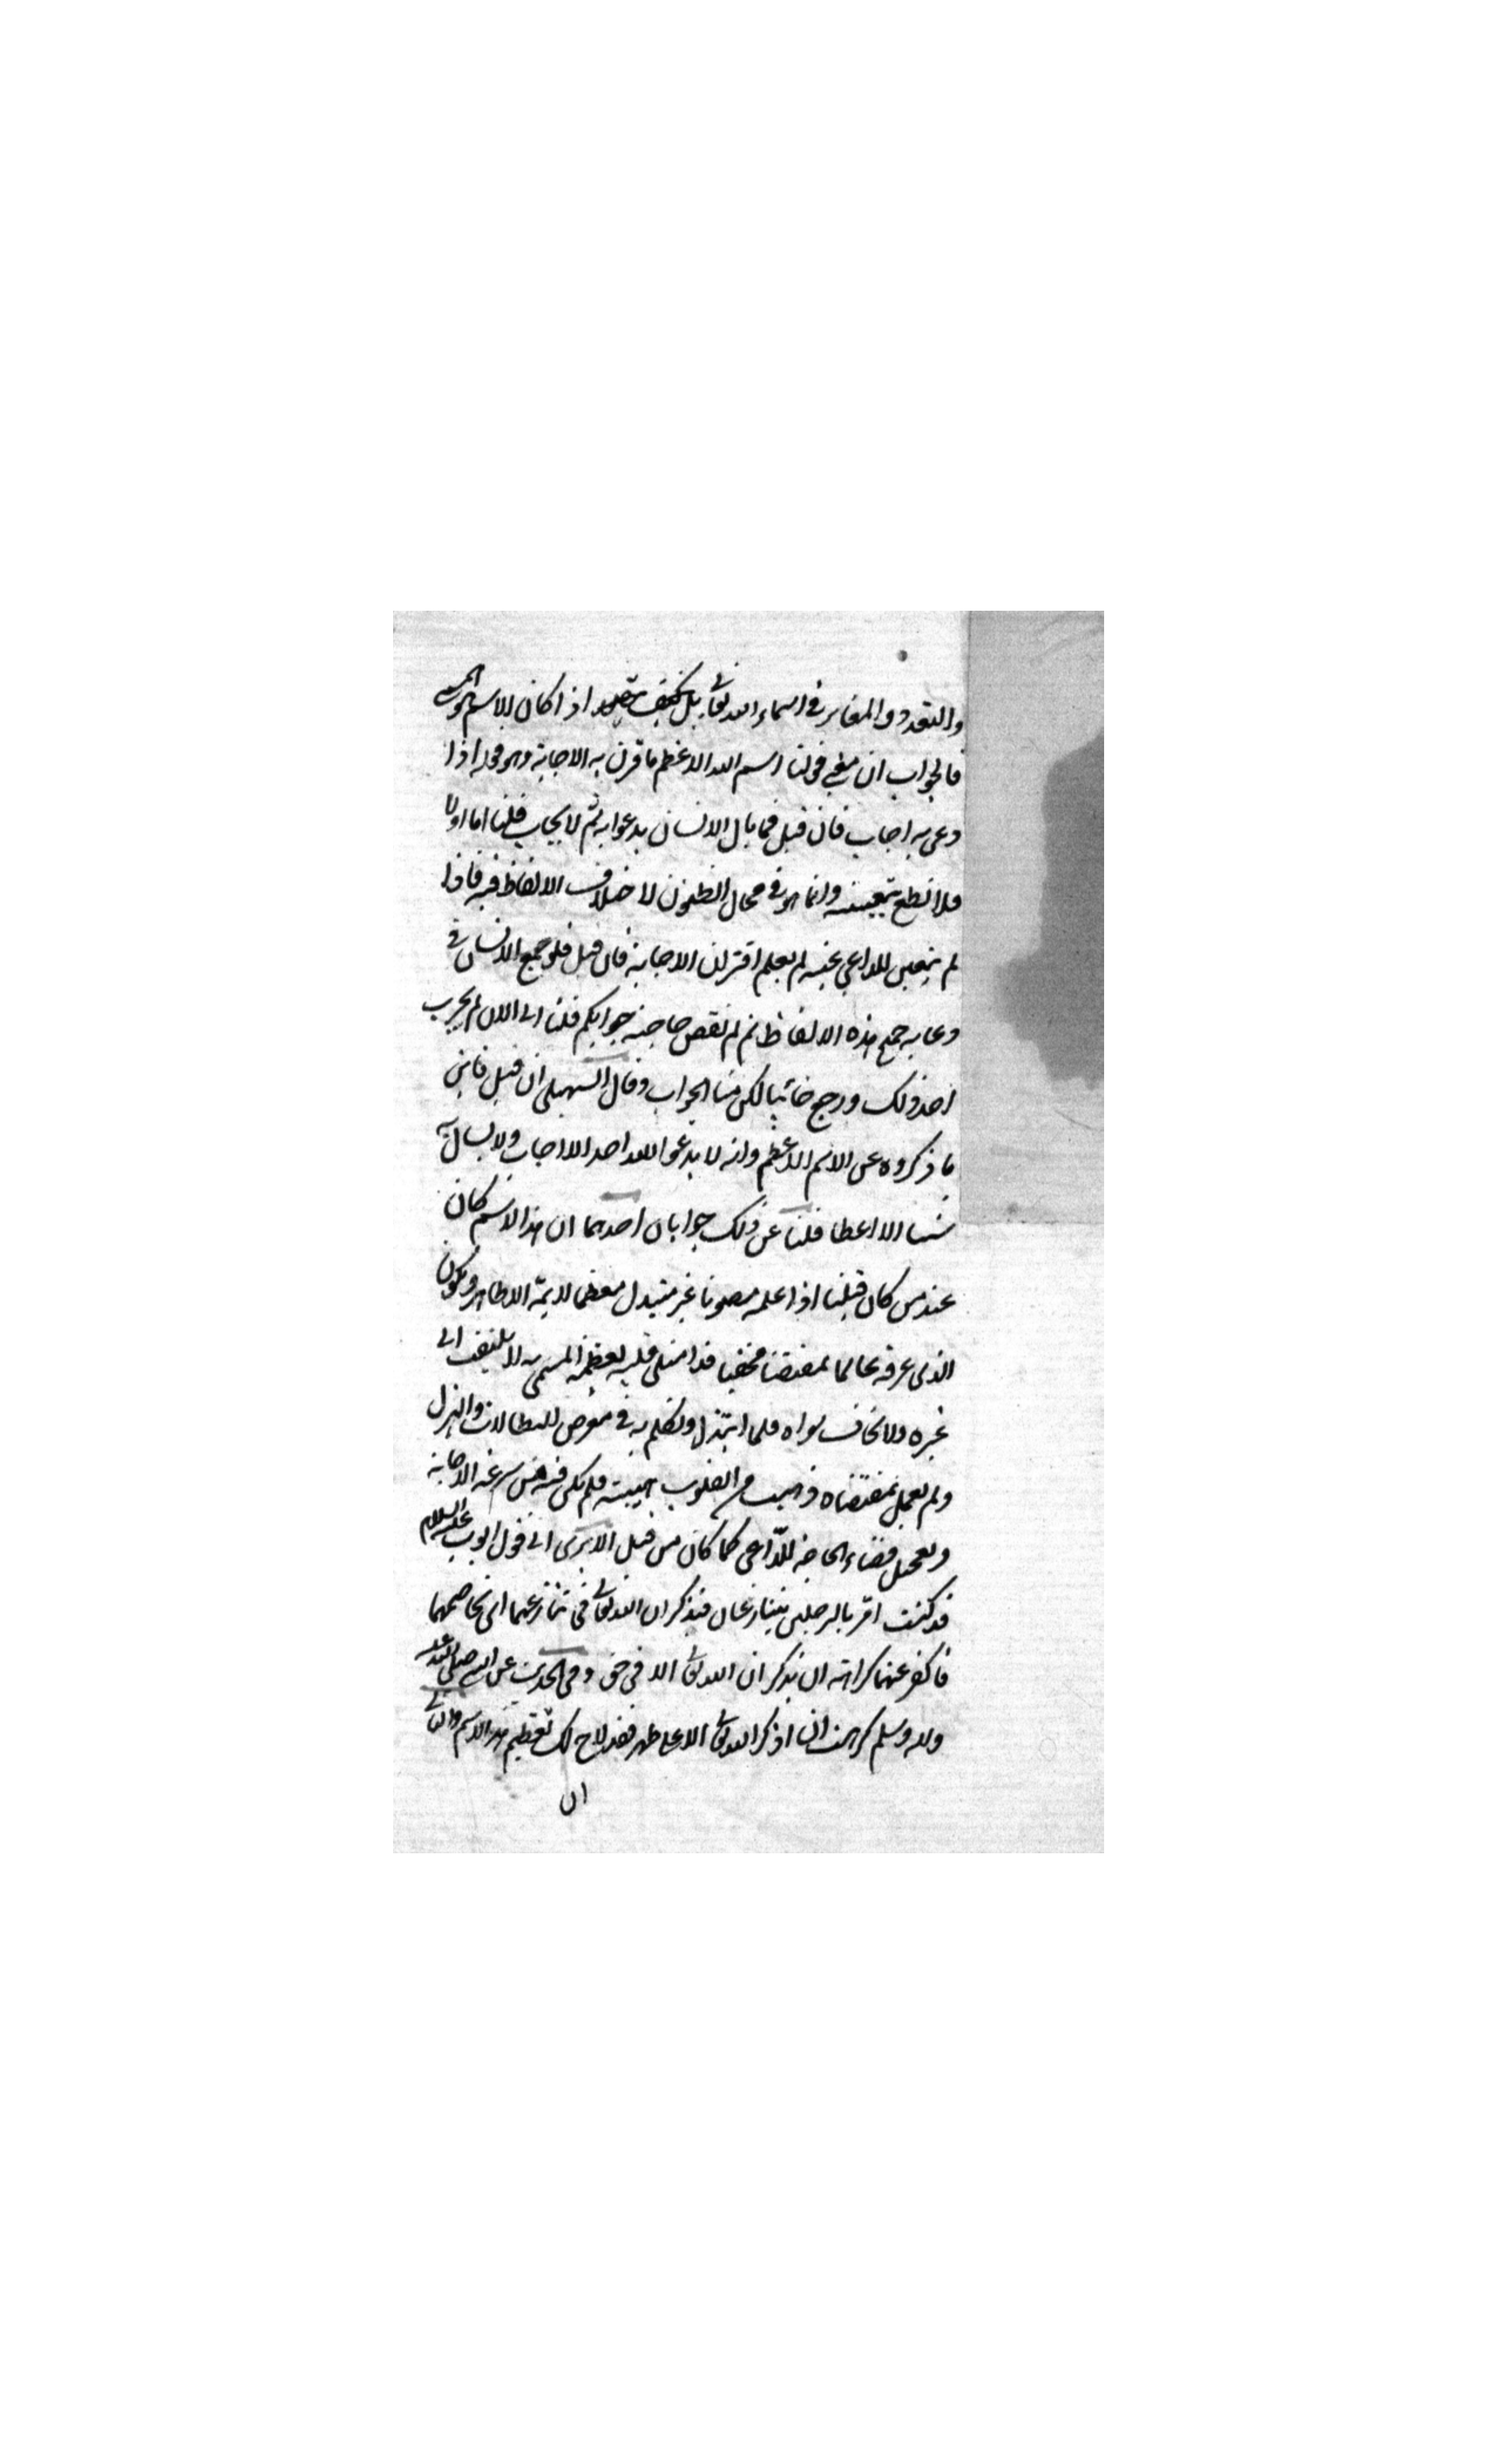 والتعدد والمغاير في اسماء الله تعا بل كيف يتصور اذا كان الاسم هو المسمى
فالجواب ان معنى قولنا اسم الله الاعظم ما قرن به الاجابة وهو قوله اذا
دعي به اجاب فان قيل فما بال الانسان يدعوا به ثم لا يجاب قلنا اما اولا
فلا نطع بتعيينه وانما هو في محال الظنون لاختلاف الالفاظ فيه فاذا
لم يتعين للداعي عينه لم يعلم اقتران الاجابة فان قيل فلو جمع الانسان في
دعايه جميع هذه الالفاظ ثم لم تقض حاجته جوابكم قلنا الى الان لم يجرب
احد ذلك ورجع خائبا لكن منا الجواب وقال السهيلي ان قيل فاين
ما ذكروه عن الاسم الاعظم وانه لا يدعوا الله احد الا اجاب ولا يسال به
شيئا الا اعطا قلنا عن ذلك جوابان احدهما ان هذا الاسم كان
عند من كان قبلنا اذا علمه مصونا غير متبدل معظما لايمة الاطاهر ويكون
الذي عرفه عالما بمقتضا مخفيا قد امتلى قلبه بعظمة المسمى به لا يلتفت الى
غيره ولا يخاف سواه فلما ابتذل وتكلم به في معرض للبطالات والهزل
ولم يعمل بمقتضاه ذهبت من القلوب هيبته فلم يكن فيه من سرعة الاجابة
وتعجيل قضاء الحاجة للداعي كما كان من قبل الا ترى الى قول ايوب عليه السلام
قد كنت امر بالرجلين يتنازعان فيذكران الله تعا في تنازعهما اي تخاصمهما
فاكفر عنهما كراهة ان يذكر ان الله تعا الا في حق وفي الحديث عن النبي صلى الله عليه
واله وسلم كرهت ان اذكر الله تعا الا على طهر فقد لاح لك تعظيم هذا الاسم والثاني
ان